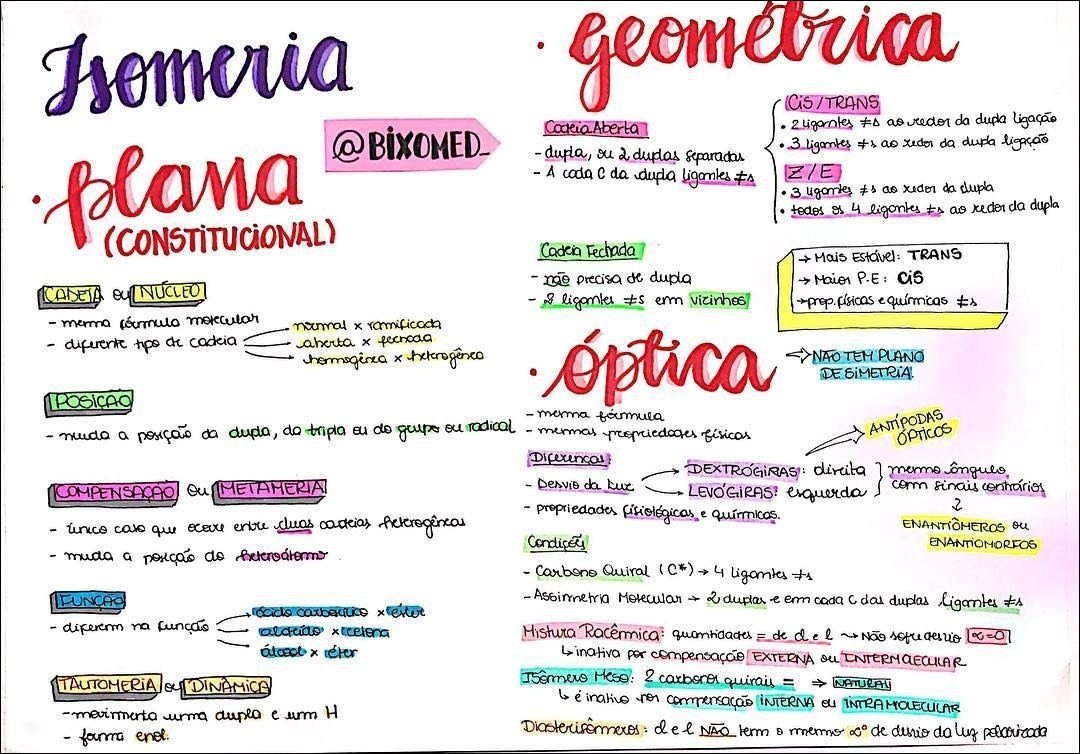 Isomeria
@BIXOMED_
• plana
(CONSTITUCIONAL)
CADEIA ou NÚCLEO
- mesma fórmula molecular
- diferente tipo de cadeia
normal x ramificada
aberta x fechada
homogênea x heterogênea
POSIÇÃO
- muda a posição da dupla, da tripla ou do grupo ou radical
COMPENSAÇÃO ou METAMERIA
- único caso que ocorre entre duas cadeias heterogêneas
- muda a posição do heteroátomo
FUNÇÃO
- diferem na função
ácido carboxílico x éster
aldeído x cetona
álcool x éter
TAUTOMERIA ou DINÂMICA
- movimenta uma dupla e um H
- forma enol.
• geométrica
Cadeia Aberta
- dupla, ou 2 duplas separadas
- A cada C da dupla ligantes ≠s
CIS/TRANS
• 2 ligantes ≠s ao redor da dupla ligação
• 3 ligantes ≠s ao redor da dupla ligação
Z/E
• 3 ligantes ≠s ao redor da dupla
• todos os 4 ligantes ≠s ao redor da dupla
Cadeia Fechada
- não precisa de dupla
- 2 ligantes ≠s em vizinhos
→ Mais Estável: TRANS
→ Maior P.E: CIS
→ prop. físicas e químicas ≠s
• óptica
→ NÃO TEM PLANO
DE SIMETRIA.
- mesma fórmula
- mesmas propriedades físicas
Diferenças:
- Desvio da Luz
DEXTRÓGIRAS: direita
LEVÓGIRAS: esquerda
ANTÍPODAS
ÓPTICOS
mesmo ângulo
com sinais contrários
ENANTIÔMEROS ou
ENANTIOMORFOS
- propriedades fisiológicas e químicas.
Condições
- Carbono Quiral (C*) → 4 ligantes ≠s
- Assimetria Molecular → 2 duplas e em cada C das duplas ligantes ≠s
Mistura Racêmica: quantidades = de d e l → Não sofre desvio ∝=0
↳ inativa por compensação EXTERNA ou INTERMOLECULAR
Isômero Meso: 2 carbonos quirais = → NATURAL
↳ é inativo por compensação INTERNA ou INTRAMOLECULAR
Diasterisômeros: d e l NÃO tem o mesmo ∝° de desvio da luz polarizada